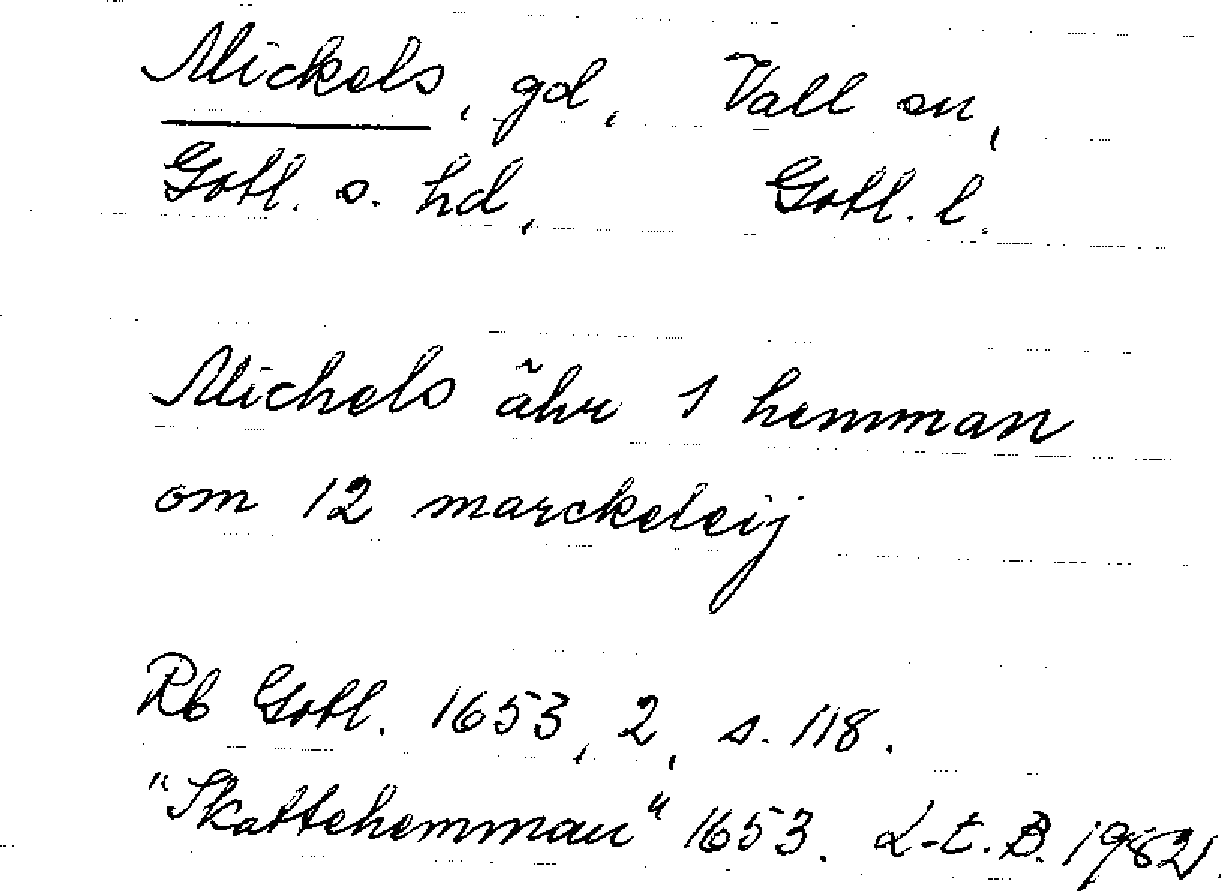 Mickels, gd, Vall sn,
Gotl. s. hd, Gotl. l.
Michels ähr 1 hemman
om 12 marckeleij
Rb Gotl. 1653, 2, s. 118.
"Skattehemman" 1653. L-t. B. 1982